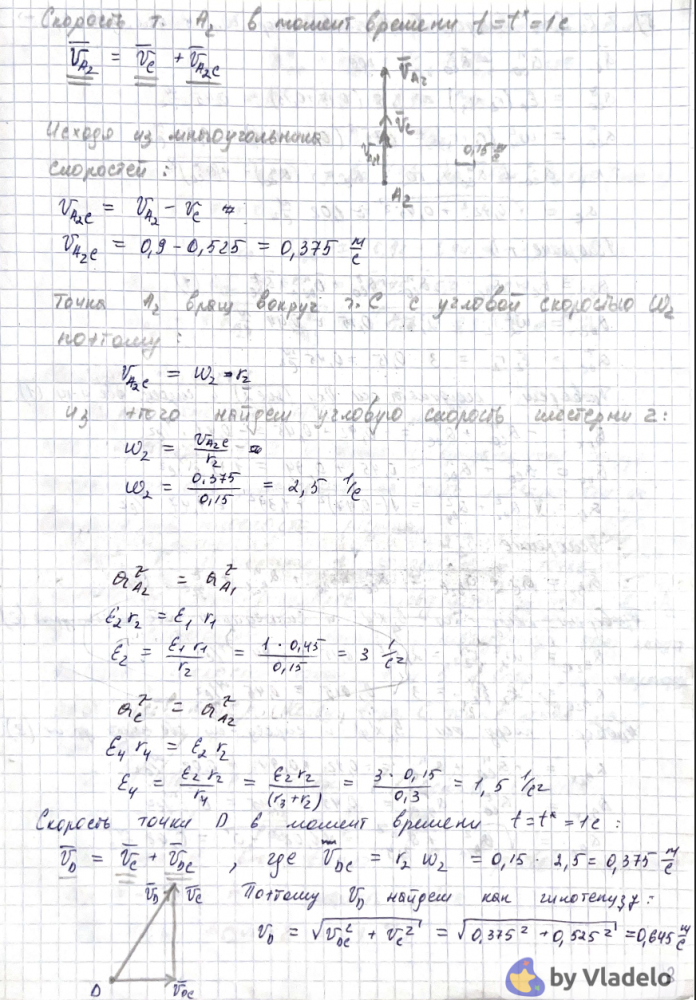 Скорость т. A₂ в момент времени t = t* = 1 c
V̅_A₂ = V̅_C + V̅_A₂C
V̅_A₂
V̅_C
A₂
0,15 м/с
Исходя из многоугольника
скоростей :
V_A₂C = V_A₂ - V_C
V_A₂C = 0,9 - 0,525 = 0,375 м/с
Точка A₂ вращ вокруг т. C с угловой скоростью ω₂
поэтому :
V_A₂C = ω₂ · r₂
из этого найдем угловую скорость шестерни 2 :
ω₂ = V_A₂C / r₂
ω₂ = 0,375 / 0,15 = 2,5 1/с
a^τ_A₂ = a^τ_A₁
ε₂ r₂ = ε₁ r₁
ε₂ = ε₁ r₁ / r₂ = 1 · 0,45 / 0,15 = 3 1/с²
a^τ_C = a^τ_A₂
ε₄ r₄ = ε₂ r₂
ε₄ = ε₂ r₂ / r₄ = ε₂ r₂ / (r₃ + r₂) = 3 · 0,15 / 0,3 = 1,5 1/с²
Скорость точки D в момент времени t = t* = 1 c :
V̅_D = V̅_C + V̅_DC , где V_DC = r₂ ω₂ = 0,15 · 2,5 = 0,375 м/с
V̅_D V̅_C
Поэтому V_D найдем как гипотенузу :
V_D = √(V_DC² + V_C²) = √(0,375² + 0,525²) = 0,645 м/с
D V̅_DC
by Vladelo